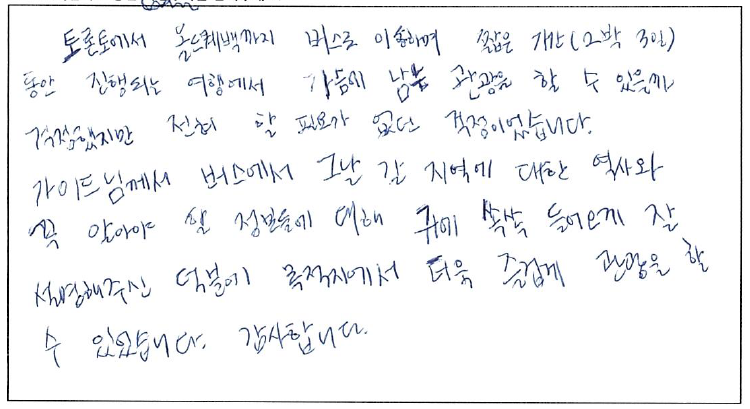 토론토에서 올드퀘벡까지 버스로 이동하며 짧은 기간(2박 3일)
동안 진행되는 여행에서 가슴에 남는 관광을 할 수 있을까
걱정했지만 전혀 할 필요가 없던 걱정이었습니다.
가이드님께서 버스에서 그날 갈 지역에 대한 역사와
꼭 알아야 할 정보들에 대해 귀에 쏙쏙 들어오게 잘
설명해주신 덕분에 목적지에서 더욱 즐겁게 관광을 할
수 있었습니다. 감사합니다.